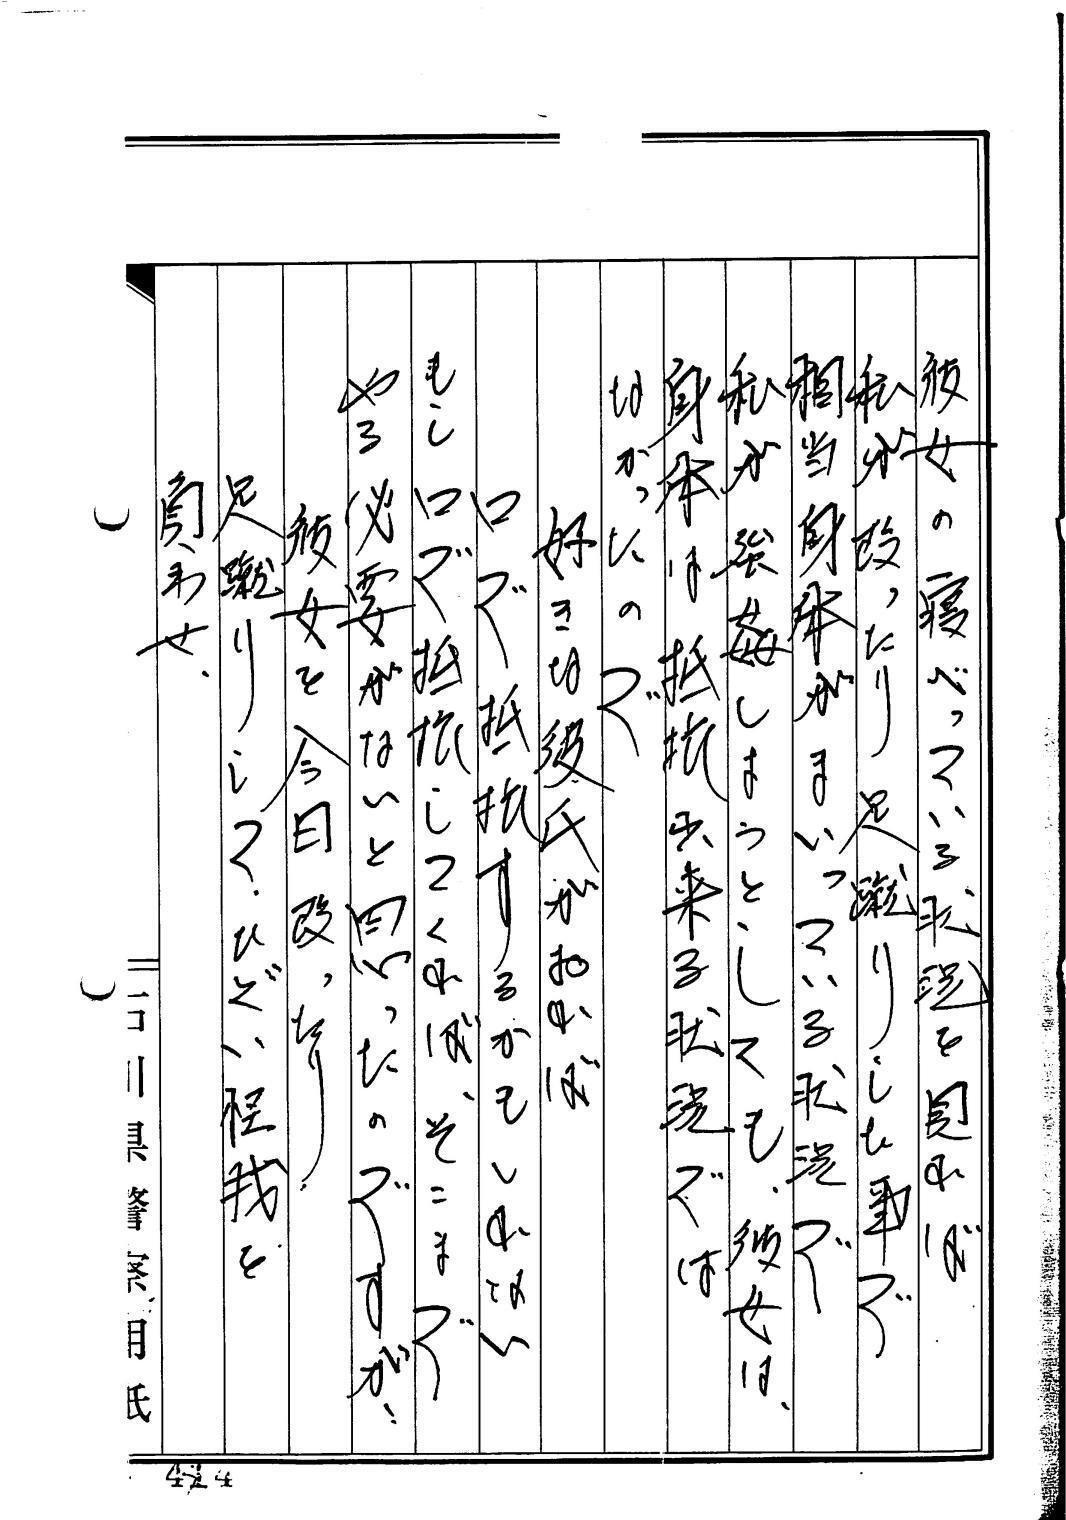 彼女の寝べっている状況を見れば
私が殴ったり足蹴りした事で
相当身体がまいっている状況で
私が強姦しまうとしても、彼女は、
身体は抵抗出来る状況では
なかったので
好きな彼氏がおれば
口で抵抗するかもしれない
もし口で抵抗してくれば、そこまで
やる必要がないと思ったのですが、
彼女を今日殴ったり
足蹴りして、ひどい怪我を
負わせ、
石川県警察用紙
424